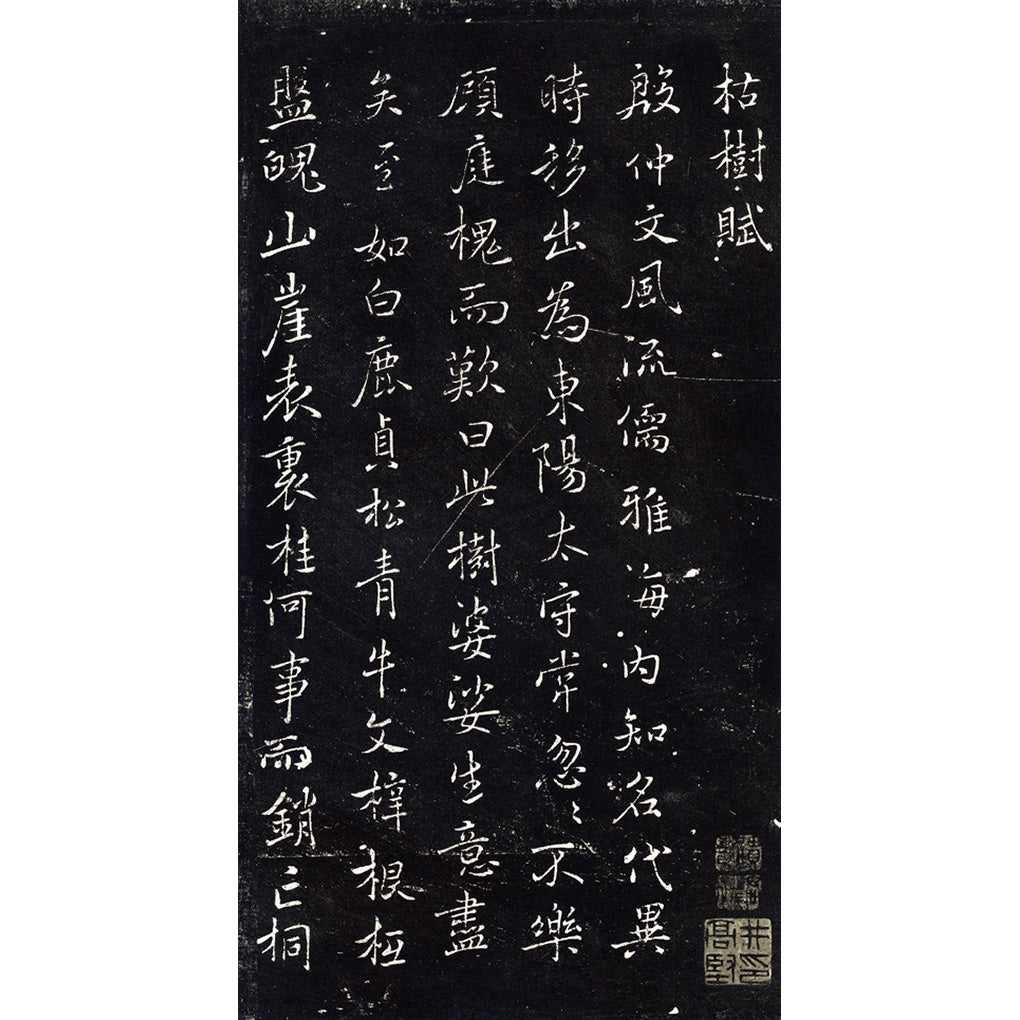 枯樹賦
殷仲文風流儒雅海内知名代異
時移出為東陽太守常忽〻不樂
顧庭槐而歎曰此樹婆娑生意盡
矣至如白鹿貞松青牛文梓根柢
盤魄山崖表裏桂何事而銷亡桐